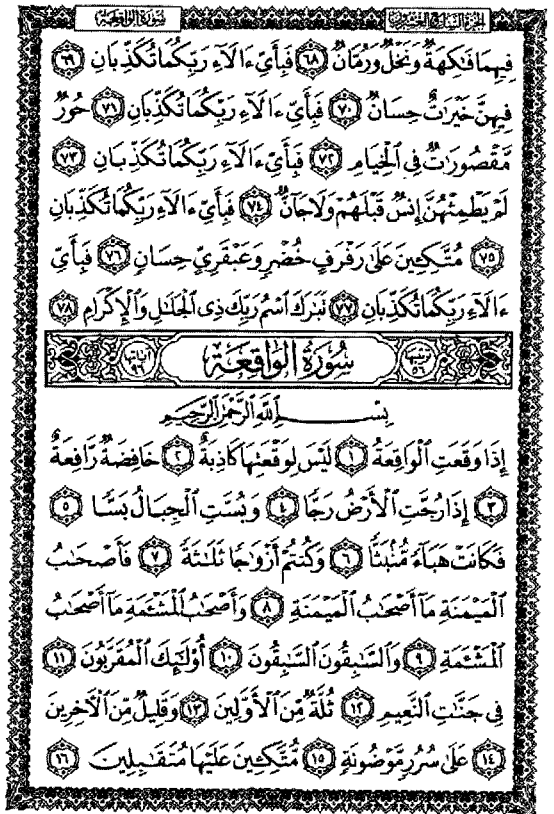 سُورَةُ الوَاقِعَة الجزء السابع والعشرون
فِيهِمَا فَٰكِهَةٌ وَنَخْلٌ وَرُمَّانٌ ٦٨ فَبِأَيِّ ءَالَآءِ رَبِّكُمَا تُكَذِّبَانِ ٦٩
فِيهِنَّ خَيْرَٰتٌ حِسَانٌ ٧٠ فَبِأَيِّ ءَالَآءِ رَبِّكُمَا تُكَذِّبَانِ ٧١ حُورٌ
مَّقْصُورَٰتٌ فِي ٱلْخِيَامِ ٧٢ فَبِأَيِّ ءَالَآءِ رَبِّكُمَا تُكَذِّبَانِ ٧٣
لَمْ يَطْمِثْهُنَّ إِنسٌ قَبْلَهُمْ وَلَا جَآنٌّ ٧٤ فَبِأَيِّ ءَالَآءِ رَبِّكُمَا تُكَذِّبَانِ
٧٥ مُتَّكِـِٔينَ عَلَىٰ رَفْرَفٍ خُضْرٍ وَعَبْقَرِيٍّ حِسَانٍ ٧٦ فَبِأَيِّ
ءَالَآءِ رَبِّكُمَا تُكَذِّبَانِ ٧٧ تَبَٰرَكَ ٱسْمُ رَبِّكَ ذِي ٱلْجَلَٰلِ وَٱلْإِكْرَامِ ٧٨
ترتيبها ٥٦ سُورَةُ الْوَاقِعَة آياتها ٩٦
بِسْمِ ٱللَّهِ ٱلرَّحْمَٰنِ ٱلرَّحِيمِ
إِذَا وَقَعَتِ ٱلْوَاقِعَةُ ١ لَيْسَ لِوَقْعَتِهَا كَاذِبَةٌ ٢ خَافِضَةٌ رَّافِعَةٌ
٣ إِذَا رُجَّتِ ٱلْأَرْضُ رَجًّا ٤ وَبُسَّتِ ٱلْجِبَالُ بَسًّا ٥
فَكَانَتْ هَبَآءً مُّنۢبَثًّا ٦ وَكُنتُمْ أَزْوَٰجًا ثَلَٰثَةً ٧ فَأَصْحَٰبُ
ٱلْمَيْمَنَةِ مَآ أَصْحَٰبُ ٱلْمَيْمَنَةِ ٨ وَأَصْحَٰبُ ٱلْمَشْـَٔمَةِ مَآ أَصْحَٰبُ
ٱلْمَشْـَٔمَةِ ٩ وَٱلسَّٰبِقُونَ ٱلسَّٰبِقُونَ ١٠ أُو۟لَٰٓئِكَ ٱلْمُقَرَّبُونَ ١١
فِي جَنَّٰتِ ٱلنَّعِيمِ ١٢ ثُلَّةٌ مِّنَ ٱلْأَوَّلِينَ ١٣ وَقَلِيلٌ مِّنَ ٱلْءَاخِرِينَ
١٤ عَلَىٰ سُرُرٍ مَّوْضُونَةٍ ١٥ مُّتَّكِـِٔينَ عَلَيْهَا مُتَقَٰبِلِينَ ١٦